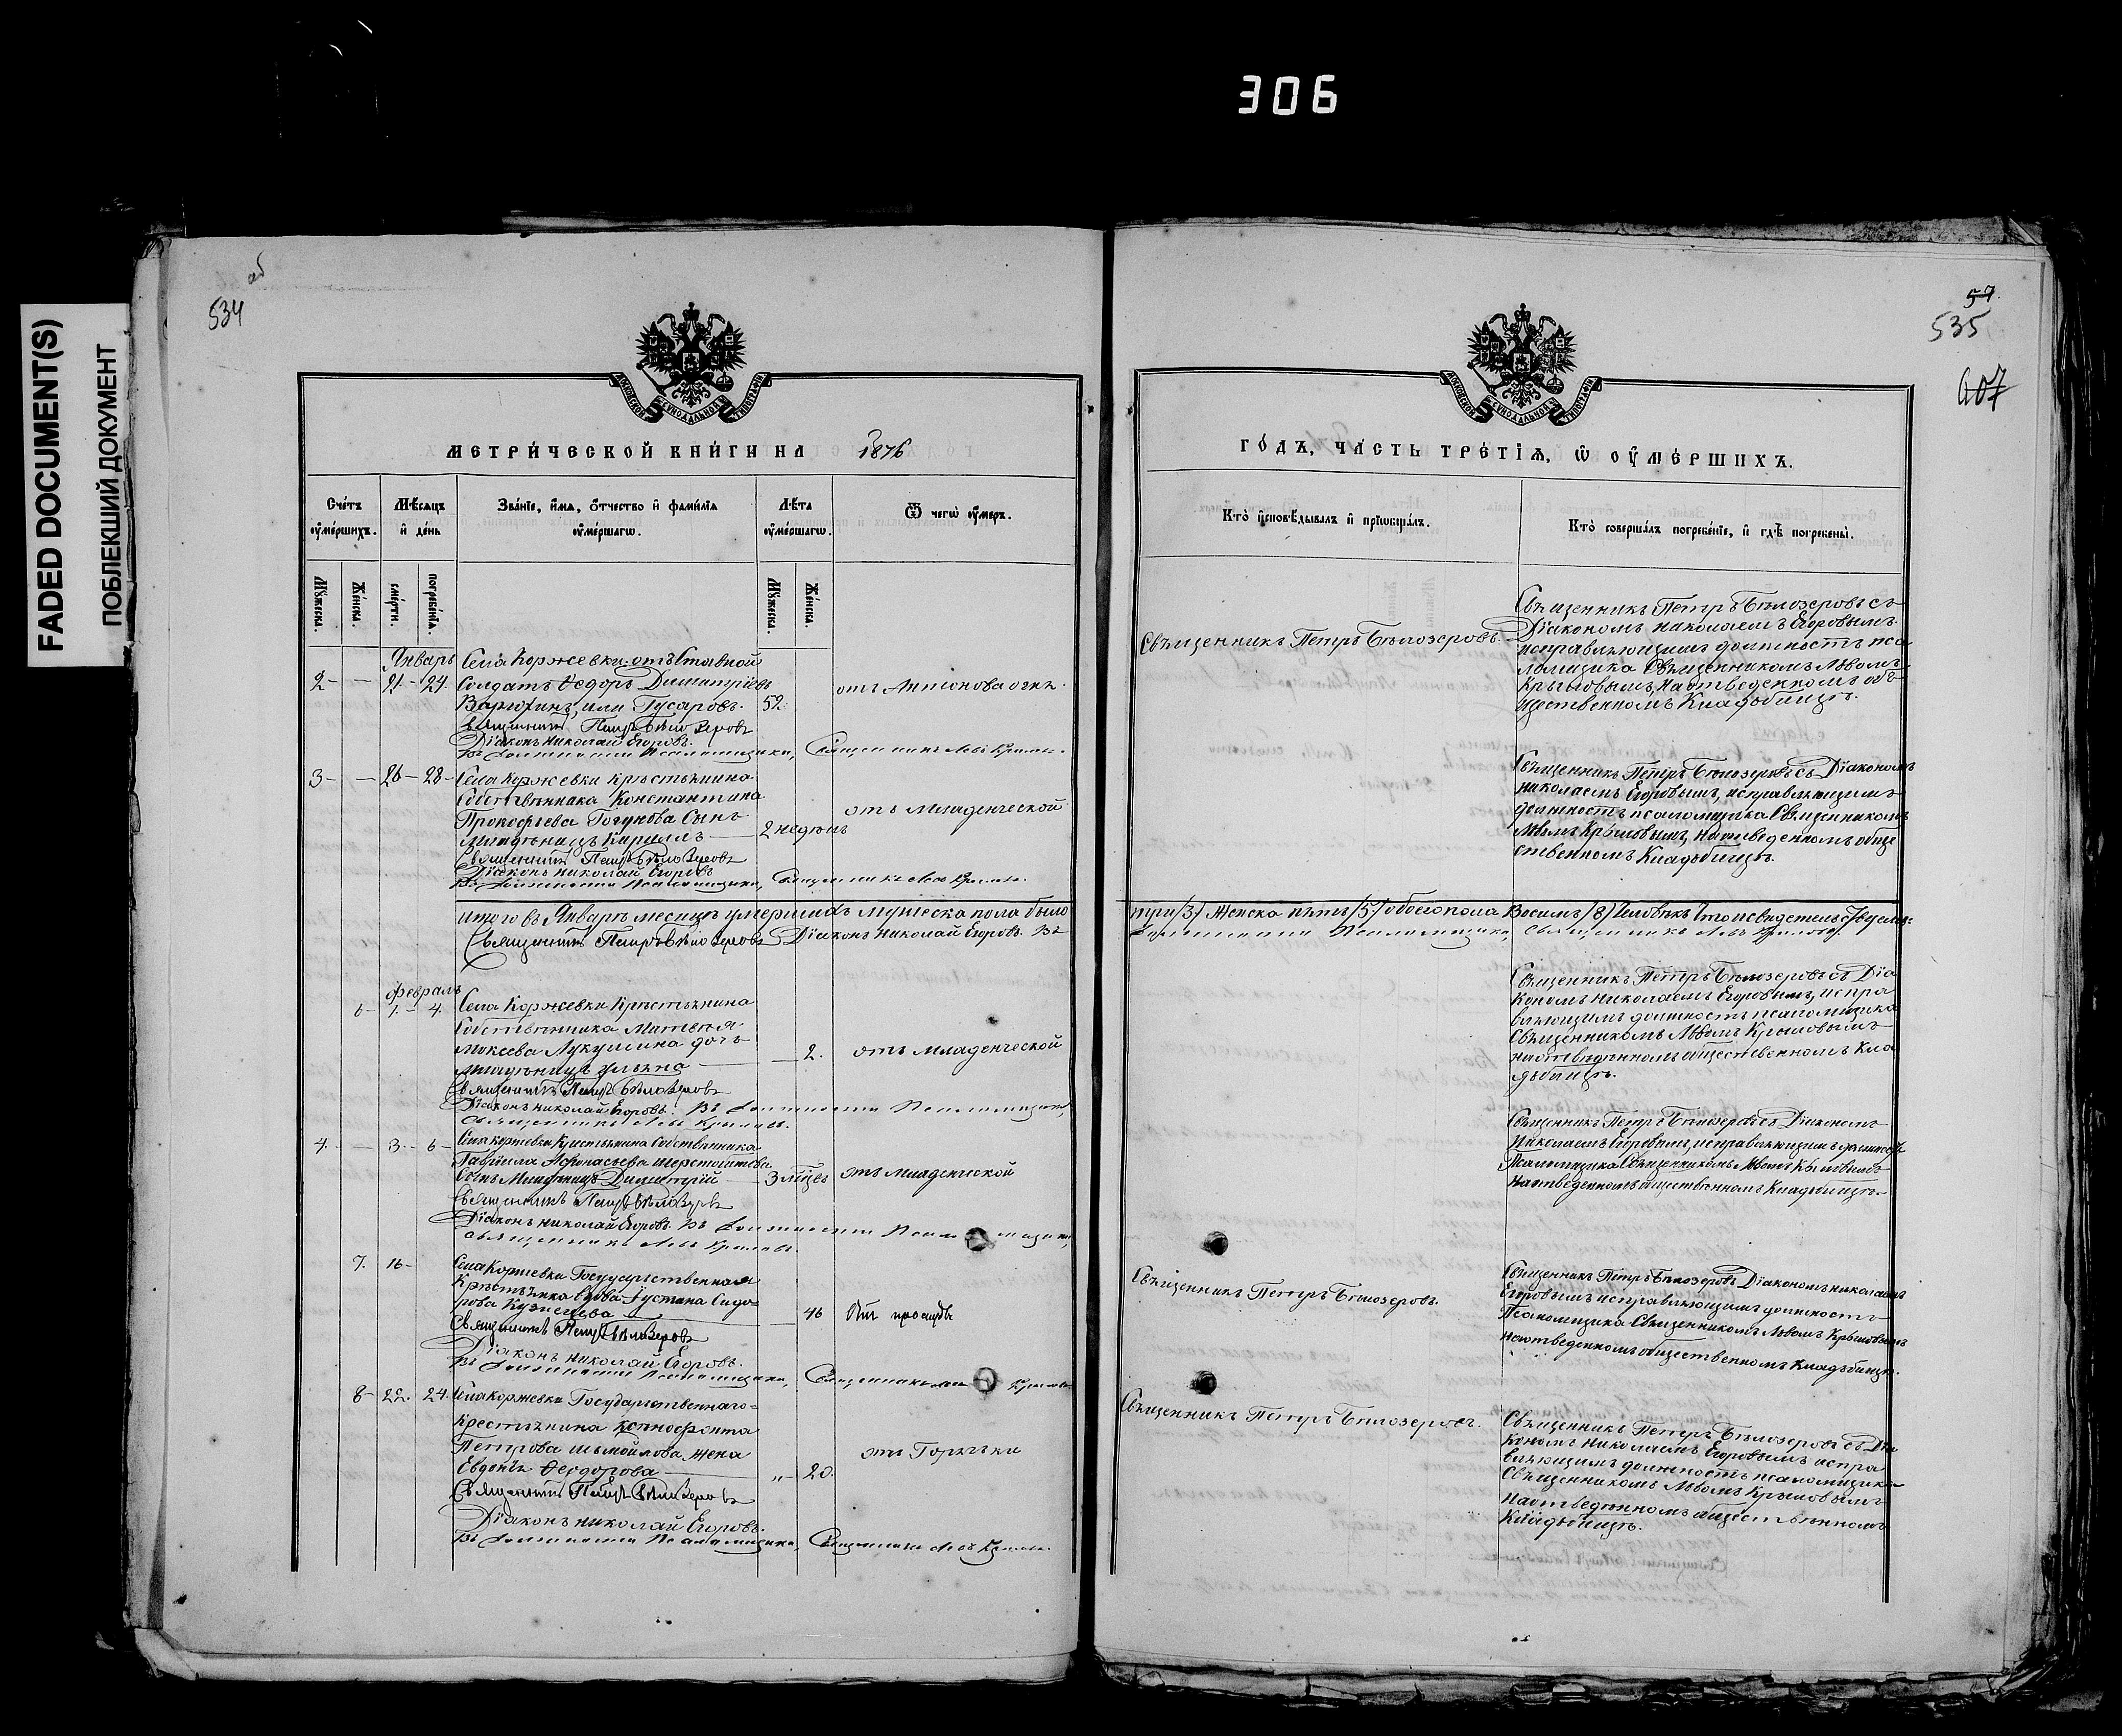 306
FADED DOCUMENT(S)
ПОБЛЕКШИЙ ДОКУМЕНТ
об
534
МОСКОВСКОЙ СѴНОДАЛЬНОЙ ТИПОГРАФІИ
МЕТРИ́ЧЕСКОЙ КНИ́ГИ НА 1876
Сче́тъ ᲂу҆ме́ршихъ.
Мѣ́сяцъ и҆ де́нь
Зва́нїе, и҆́мя, ѻ҆́тчество и҆ фами́лїя ᲂу҆ме́ршагѡ.
Лѣ́та ᲂу҆ме́ршагѡ.
Ѿ чегѡ̀ ᲂу҆́меръ.
Мꙋ́жеска.
Же́нска.
сме́рти.
погребе́нїя.
Мꙋ́жеска.
Же́нска.
Январь
2 – – 21 – 24. Села Коржевки отъ Ставной
Солдатъ Ѳедоръ Димитріевъ
Варюхинъ, или Гусаровъ. 52. отъ Антонова огня.
Священникъ Петръ Бѣлозеровъ
Діаконъ Николай Егоровъ.
Въ должности Псаломщика, Священникъ Левъ Крыловъ.
3 – – 26 – 28 – Села Коржевки крестьянина
Собственника Константина
Прокофьева Гогунова Сынъ
Младенецъ Кириллъ 2 недѣль отъ Младенческой
Священникъ Петръ Бѣлозеровъ
Діаконъ Николай Егоровъ
Въ должности Псаломщика, Священникъ Левъ Крыловъ.
Итого въ Январѣ месяцѣ умершихъ мужеска пола было
Священникъ Петръ Бѣлозеровъ Діаконъ Николай Егоровъ. Въ
Февраль
6 – 1. – 4. Села Коржевки Крестьянина
Собственника Матвѣя
Мокеева Лукушина дочь
младенецъ Ульяна – 2. отъ Младенческой
Священникъ Петръ Бѣлозеровъ
Діаконъ Николай Егоровъ. Въ должности Псаломщика,
Священникъ Левъ Крыловъ.
4. – – 3. – 6 – Села Коржевки Крестьянина Собственника
Гавріила Афонасьева Шерстобитова
Сынъ Младенецъ Димитрій – 3 мѣсяцев отъ Младенческой
Священникъ Петръ Бѣлозеровъ
Діаконъ Николай Егоровъ. Въ должности Псаломщика,
Священникъ Левъ Крыловъ.
7. 16 – Села Коржевки Государственная
Крестьянка вдова Іустина Сидо-
рова Кузнецова – 46 отъ простуды
Священникъ Петръ Бѣлозеровъ
Діаконъ Николай Егоровъ.
Въ должности Псаломщика, Священникъ Левъ Крыловъ
8 – 22. 24. Села Коржевки Государственнаго
Крестьянина Ксенофонта
Петрова Шымойлова Жена
Евдокія Ѳеодорова – „ – 20. отъ Горячки
Священникъ Петръ Бѣлозеровъ
Діаконъ Николай Егоровъ.
Въ должности Псаломщика, Священникъ Левъ Крыловъ.
57.
535
407
МОСКОВСКОЙ СѴНОДАЛЬНОЙ ТИПОГРАФІИ
ГО́ДЪ, ЧА́СТЬ ТРЕ́ТЇѦ, Ѡ҆ ОУ҆МЕ́РШИХЪ.
Кто̀ и҆сповѣ́дывалъ и҆ прїѡбща́лъ.
Кто̀ соверша́лъ погребе́нїе, и҆ гдѣ̀ погребены̀.
Священникъ Петръ Бѣлозеровъ.
Священникъ Петръ Бѣлозеровъ съ
Діакономъ Николаемъ Егоровымъ
исправляющимъ должность пса
ломщика Священникомъ Львомъ
Крыловымъ, На отведенномъ об-
щественномъ Кладбищѣ.
Священникъ Петръ Бѣлозеровъ съ Діакономъ
Николаемъ Егоровымъ, исправляющимъ
должность псаломщика Священникомъ
Львомъ Крыловымъ, На отведенномъ обще
ственномъ Кладбищѣ.
три /3/ Женска пять /5/ обоего пола Восемь /8/ Человѣкъ Что и свидетельствуемъ:
должности Псаломщика, Священникъ Левъ Крыловъ.
Священникъ Петръ Бѣлозеровъ съ Діа
кономъ Николаемъ Егоровымъ, испра
вляющимъ должность псаломщика
Священникомъ Львомъ Крыловымъ
на отведенномъ общественномъ Кла
дбищѣ.
Священникъ Петръ Бѣлозеровъ съ Діакономъ
Николаемъ Егоровымъ, исправляющимъ должность
Псаломщика Священникомъ Львомъ Крыловымъ
На отведенномъ общественномъ Кладбищѣ.
Священникъ Петръ Бѣлозеровъ.
Священникъ Петръ Бѣлозеровъ Діакономъ Николаемъ
Егоровымъ исправляющимъ должность
Псаломщика Священникомъ Львомъ Крыловымъ
на отведенномъ общественномъ Кладбищѣ.
Священникъ Петръ Бѣлозеровъ.
Священникъ Петръ Бѣлозеровъ съ Діа
кономъ Николаемъ Егоровымъ испра
вляющимъ должность псаломщика
Священникомъ Львомъ Крыловымъ
На отведенномъ общественномъ
Кладбищѣ.